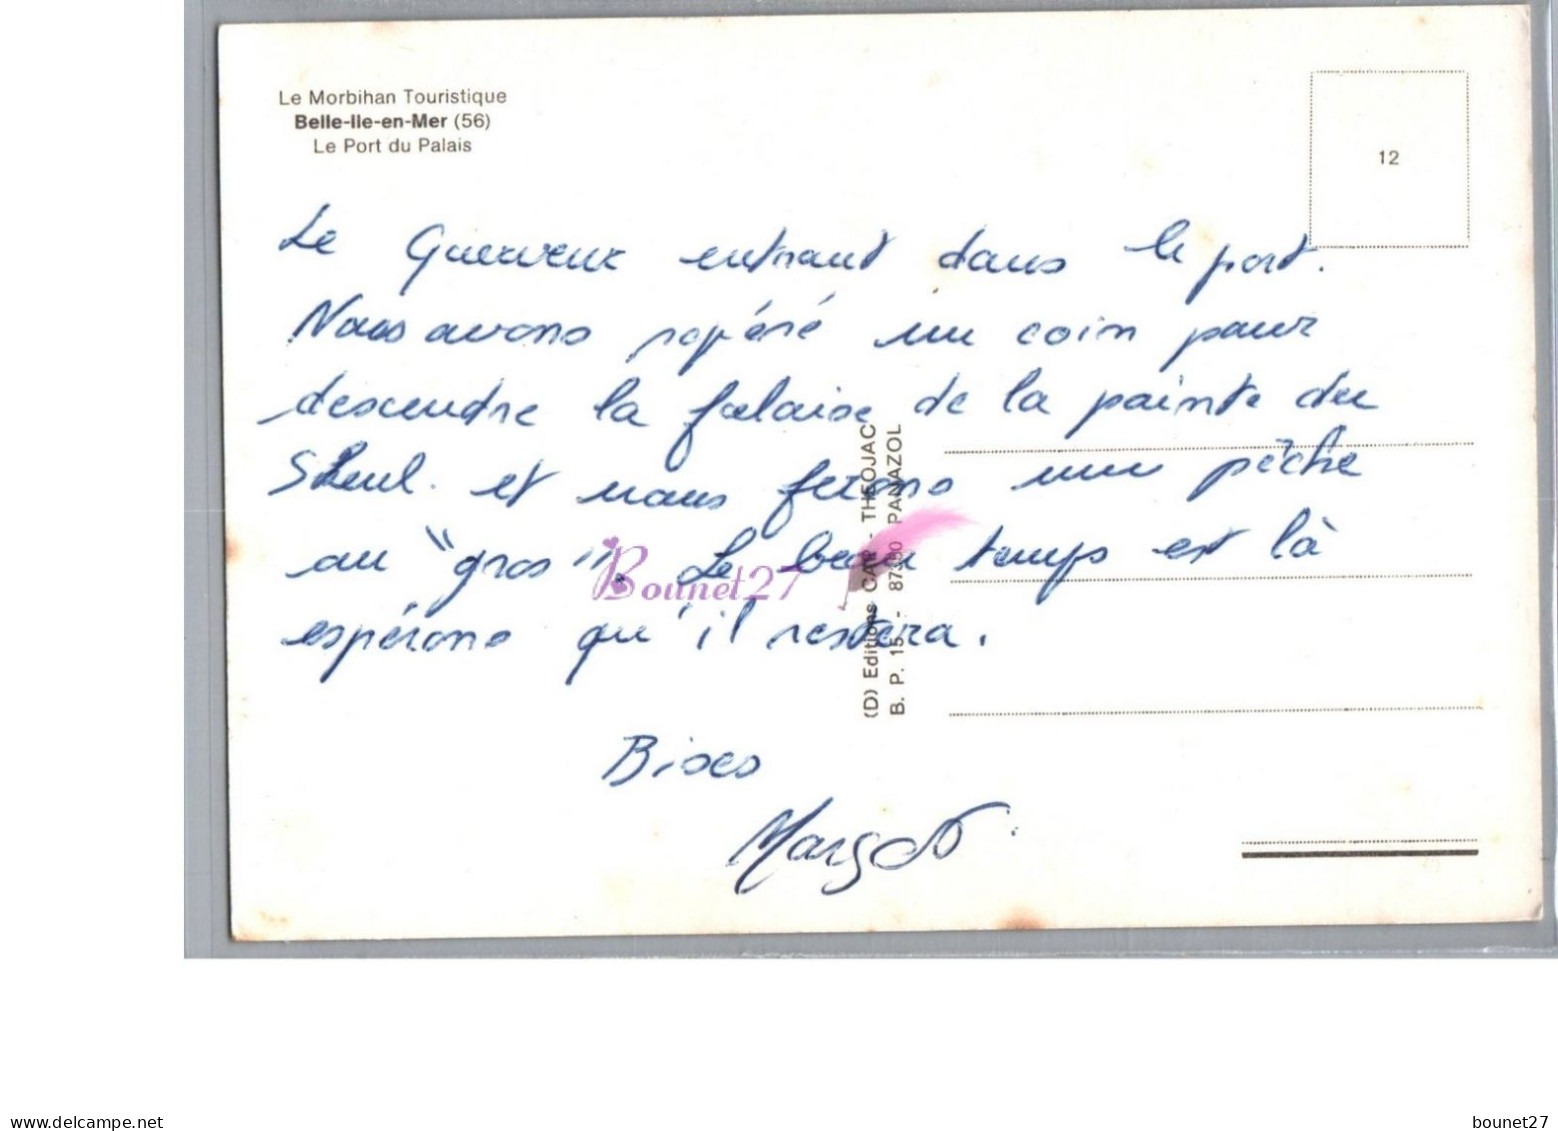 Le Morbihan Touristique
Belle-Ile-en-Mer (56)
Le Port du Palais
12
Le Guerveur entrant dans le port.
Nous avons repéré un coin pour
descendre la falaise de la pointe du
Skeul. et nous ferons une pêche
au "gros". Le beau temps est là
espérons qu'il restera.
Bises
Margot
(D) Editions CAP - THEOJAC
B. P. 15 - 87350 PANAZOL
Bounet27
www.delcampe.net
bounet27